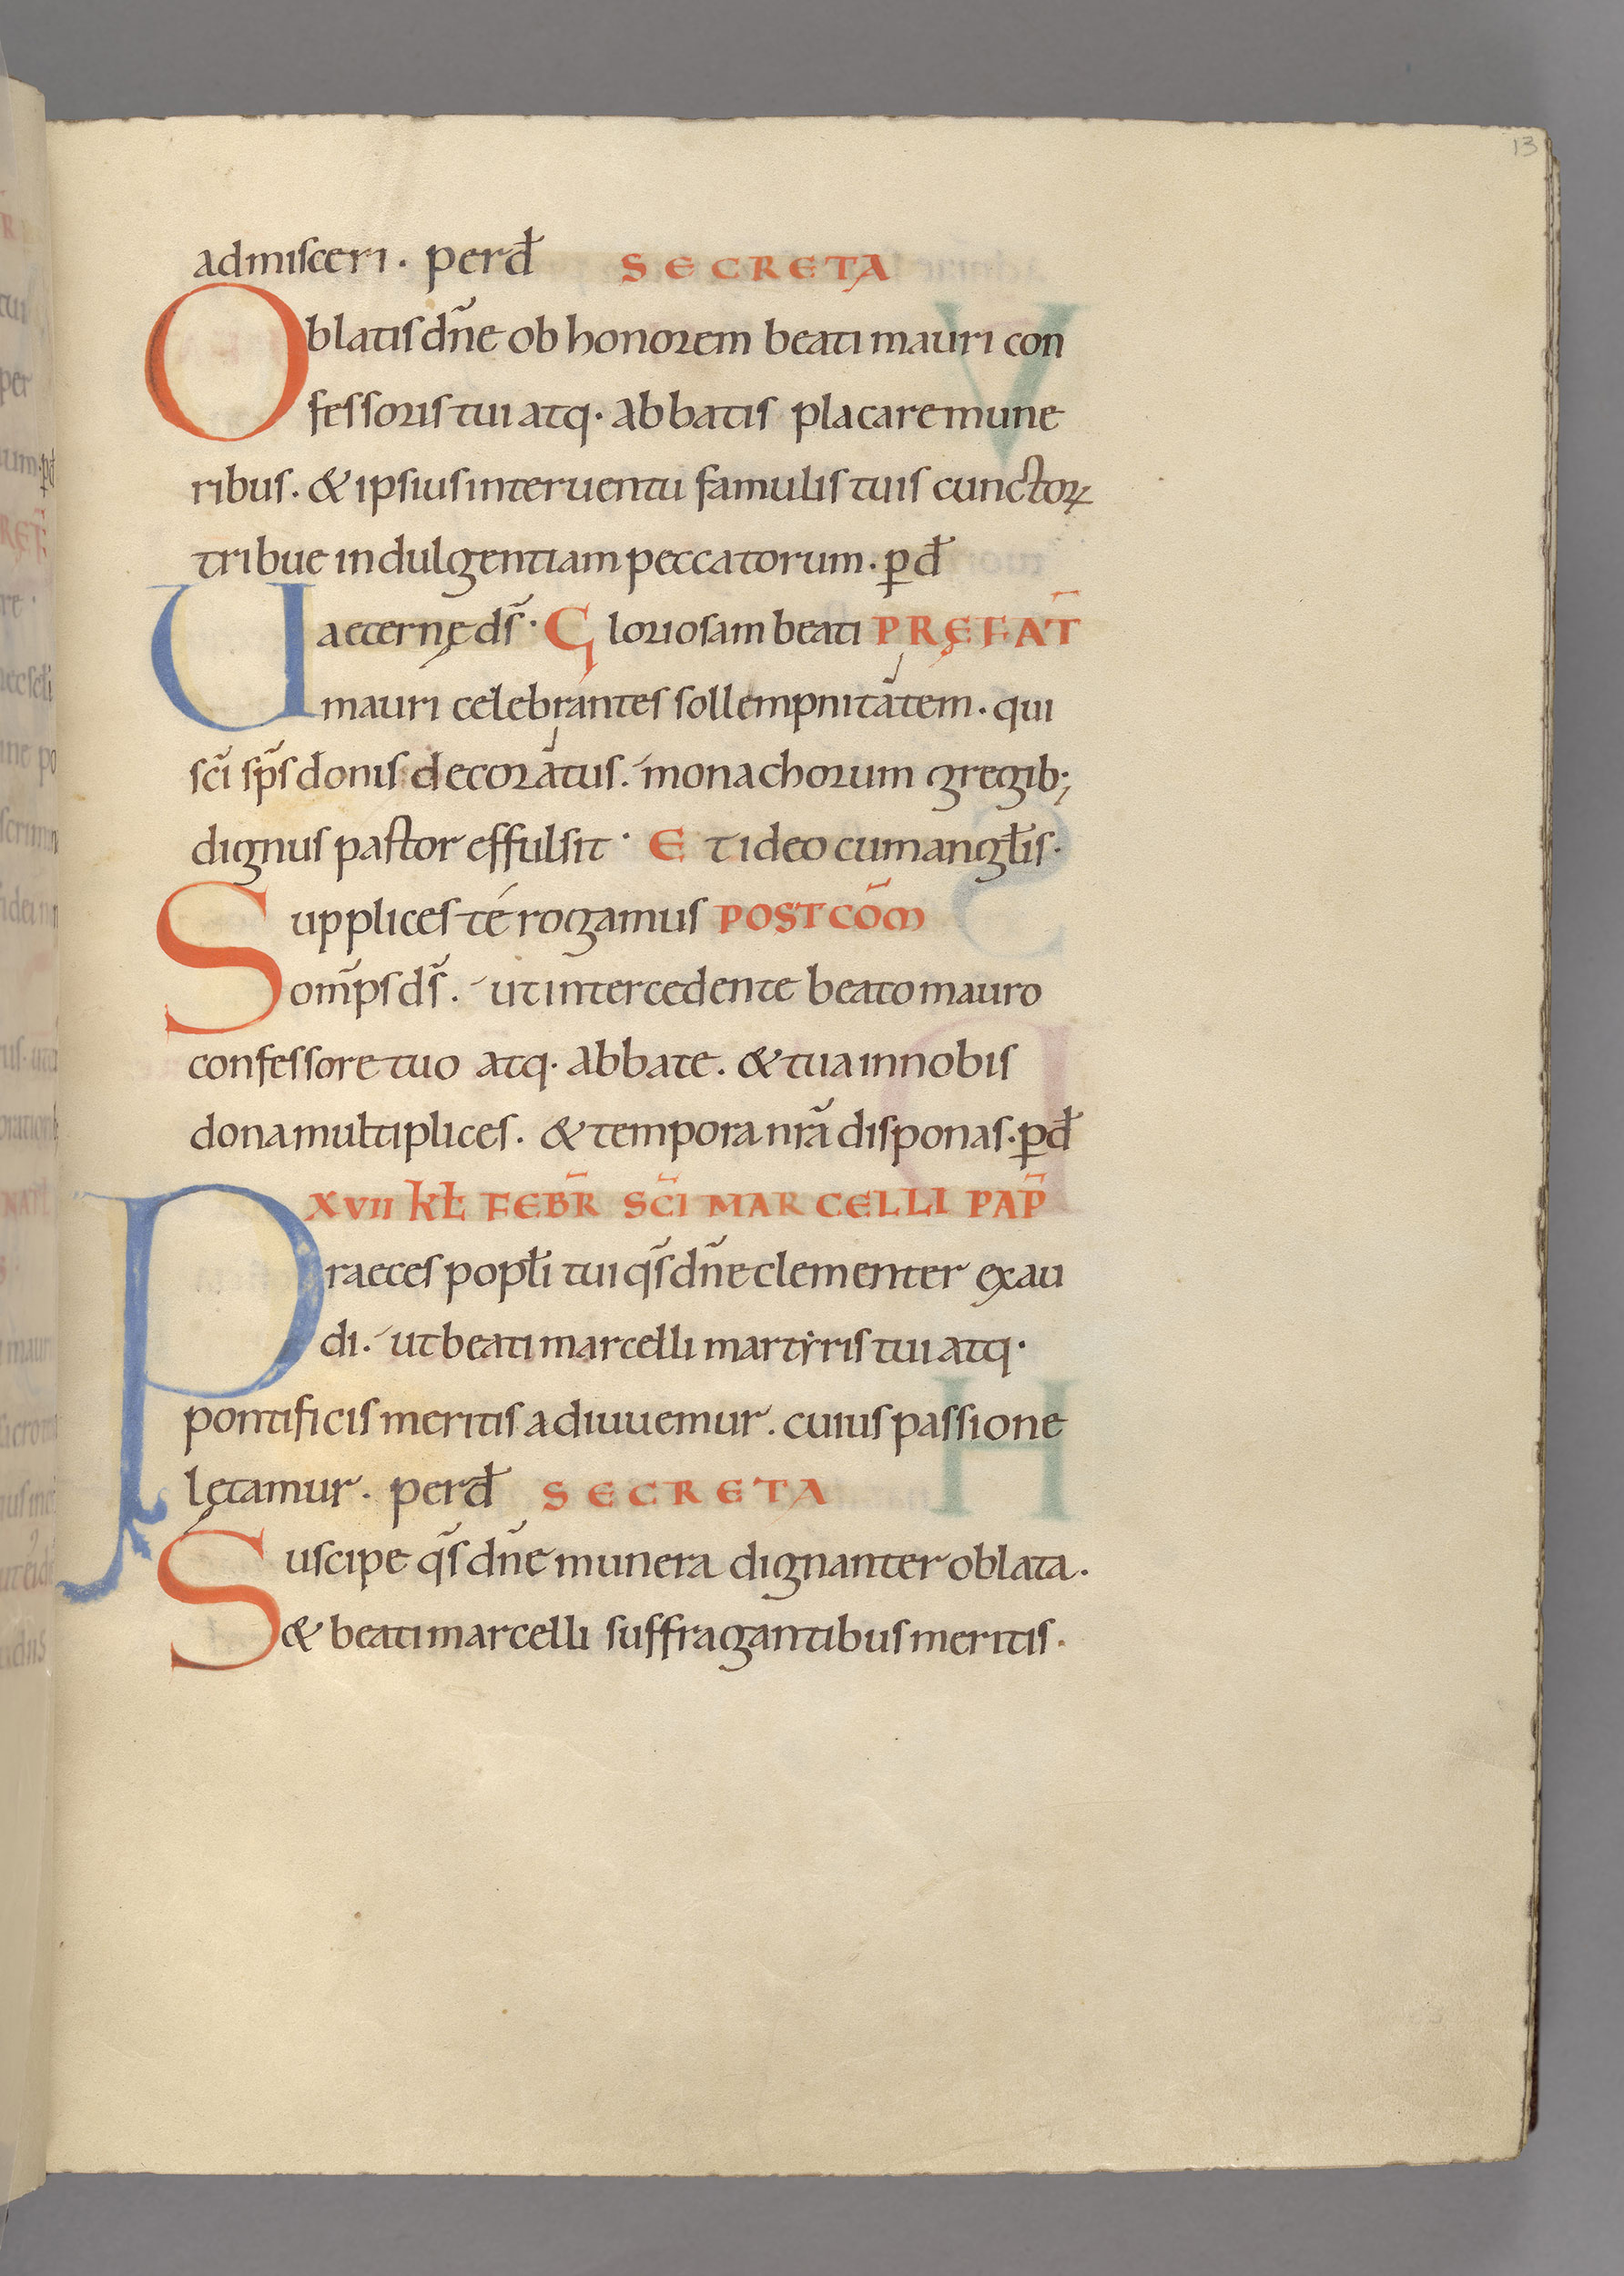 13
admisceri. perđ SECRETA
Oblatis dñe ob honorem beati mauri con
fessoris tui atq· abbatis placare mune
ribus. & ipsius interuentu famulis tuis cunctoꝝ
tribue indulgentiam peccatorum. ꝑđ
U aeternę ds̄· Gloriosam beati PRĘFAT̄
mauri celebrantes sollempnitatem. qui
sc̄i sp̄s donis decoratus. monachorum gregib;
dignus pastor effulsit· Et ideo cum angłis·
Supplices té rogamus POSTCOM̄
om̄ps ds̄. ut intercedente beato mauro
confessore tuo atq· abbate. & tua in nobis
dona multiplices. & tempora nr̄a disponas. ꝑđ
XVII KŁ FEBR̄ SC̄I MARCELLI PAP̄
Praeces popłi tui qs̄ dñe clementer exau
di. ut beati marcelli martyris tui atq·
pontificis meritis adiuuemur. cuius passione
lętamur. perđ SECRETA
Suscipe qs̄ dñe munera dignanter oblata.
& beati marcelli suffragantibus meritis.